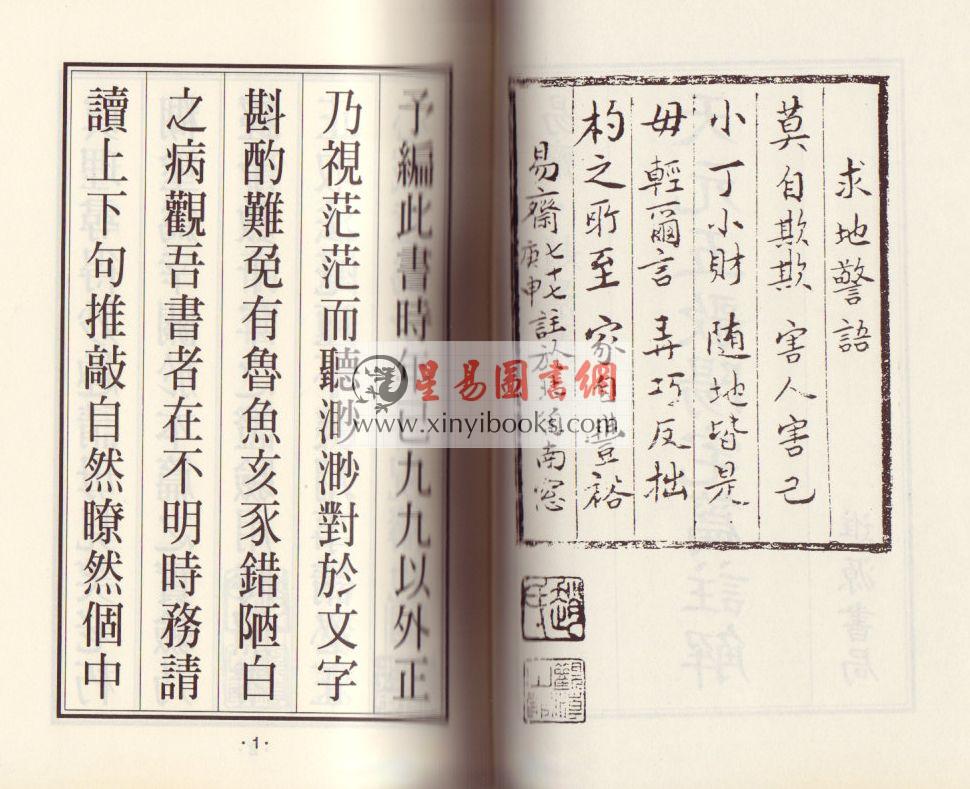 求地警語
莫自欺欺 害人害己
小丁小財 随地皆是
毋輕爾言 弄巧反拙
杓之所至 家自豐裕
易齋 七十七 庚申 註於 南窓
予編此書時年已九九以外正
乃視茫茫而聽渺渺對於文字
斟酌難免有魯魚亥豕錯陋白
之病觀吾書者在不明時務請
讀上下句推敲自然瞭然個中
·1·
星易圖書網
www.xinyibooks.com